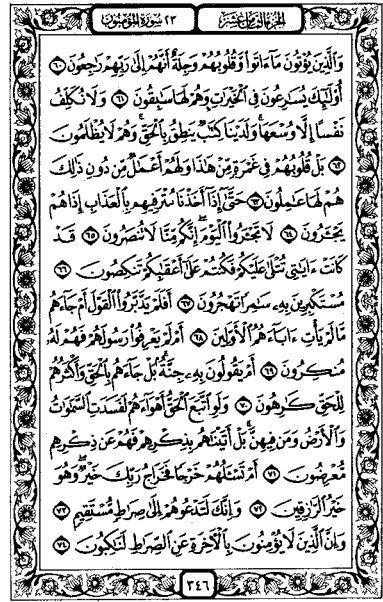 الجزء الثامن عشر
٢٣ سورة المؤمنون
وَالَّذِينَ يُؤْتُونَ مَا ءَاتَوا وَّقُلُوبُهُمْ وَجِلَةٌ أَنَّهُمْ إِلَىٰ رَبِّهِمْ رَٰجِعُونَ ٦٠
أُوْلَٰئِكَ يُسَٰرِعُونَ فِي الْخَيْرَٰتِ وَهُمْ لَهَا سَٰبِقُونَ ٦١ وَلَا نُكَلِّفُ
نَفْسًا إِلَّا وُسْعَهَا وَلَدَيْنَا كِتَٰبٌ يَنطِقُ بِالْحَقِّ وَهُمْ لَا يُظْلَمُونَ
٦٢ بَلْ قُلُوبُهُمْ فِي غَمْرَةٍ مِّنْ هَٰذَا وَلَهُمْ أَعْمَٰلٌ مِّن دُونِ ذَٰلِكَ
هُمْ لَهَا عَٰمِلُونَ ٦٣ حَتَّىٰ إِذَا أَخَذْنَا مُتْرَفِيهِم بِالْعَذَابِ إِذَا هُمْ
يَجْـَٔرُونَ ٦٤ لَا تَجْـَٔرُوا الْيَوْمَ إِنَّكُم مِّنَّا لَا تُنصَرُونَ ٦٥ قَدْ
كَانَتْ ءَايَٰتِي تُتْلَىٰ عَلَيْكُمْ فَكُنتُمْ عَلَىٰ أَعْقَٰبِكُمْ تَنكِصُونَ ٦٦
مُسْتَكْبِرِينَ بِهِ سَٰمِرًا تَهْجُرُونَ ٦٧ أَفَلَمْ يَدَّبَّرُوا الْقَوْلَ أَمْ جَاءَهُم
مَّا لَمْ يَأْتِ ءَابَاءَهُمُ الْأَوَّلِينَ ٦٨ أَمْ لَمْ يَعْرِفُوا رَسُولَهُمْ فَهُمْ لَهُ
مُنكِرُونَ ٦٩ أَمْ يَقُولُونَ بِهِ جِنَّةٌ بَلْ جَاءَهُم بِالْحَقِّ وَأَكْثَرُهُمْ
لِلْحَقِّ كَٰرِهُونَ ٧٠ وَلَوِ اتَّبَعَ الْحَقُّ أَهْوَاءَهُمْ لَفَسَدَتِ السَّمَٰوَٰتُ
وَالْأَرْضُ وَمَن فِيهِنَّ بَلْ أَتَيْنَٰهُم بِذِكْرِهِمْ فَهُمْ عَن ذِكْرِهِم
مُّعْرِضُونَ ٧١ أَمْ تَسْـَٔلُهُمْ خَرْجًا فَخَرَاجُ رَبِّكَ خَيْرٌ وَهُوَ
خَيْرُ الرَّٰزِقِينَ ٧٢ وَإِنَّكَ لَتَدْعُوهُمْ إِلَىٰ صِرَٰطٍ مُّسْتَقِيمٍ ٧٣
وَإِنَّ الَّذِينَ لَا يُؤْمِنُونَ بِالْآخِرَةِ عَنِ الصِّرَٰطِ لَنَٰكِبُونَ ٧٤
٣٤٦